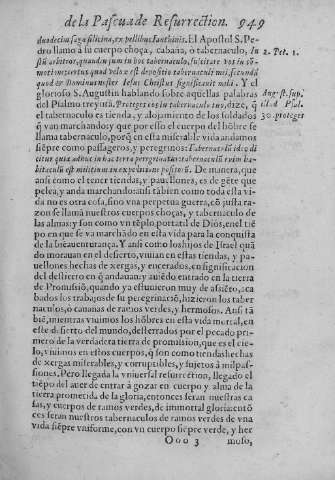 de la Pascua de Resurrection. 949
duodecim saga silicina, ex pellibus Ianthinis. El Apostol S. Pe-
dro llamo à su cuerpo choça, cabaña, o tabernaculo, In 2. Pet. 1.
stũ arbitror, quandiu sum in hoc tabernaculo, suscitare vos in
certus quod velox est depositio tabernaculi mei, secundũ
quod & Dominus noster Iesus Christus significavit mihi. Y el
glorioso S. Augustin hablando sobre aquellas palabras Aug. st. sup.
del Psalmo treynta. Proteges eos in tabernaculo tuo, dize, q̃ illud Psal.
el tabernaculo es tienda, y alojamiento de los soldados 30. proteges
q̃ van marchando, y que por esso el cuerpo del hõbre se
llama tabernaculo, porq̃ en esta miserable vida andamos
siẽpre como passageros, y peregrinos: Tabernaculũ ideo di
citur quia adhuc in hac terra peregrinatur
De manera, que
ansi como el tener tiendas, y pauellones, es de gẽte que
pelea, y anda marchando: ansi tãbien como toda esta vi
da no es otra cosa, sino vna perpetua guerra, cõ justa ra-
zon se llamã nuestros cuerpos choças, y tabernaculo de
las almas: y son como vn tẽplo portatil de Dios, en el tiẽ
po en que se va marchãdo en esta vida para la conquista
de la biẽauenturança. Y ansi como los hijos de Israel quã
do morauan en el desierto, viuian en estas tiendas, y pa-
uellones hechas de xergas, y encerados, en significacion
del destierro en q̃ andauan: y auiẽdo entrado en la tierra
de Promissiõ, quando ya estuuieron muy de assiẽto, aca
bados los trabajos de su peregrinaciõ, hizieron los taber
naculos, o cabañas de ramos verdes, y hermosos. Ansi tã
biẽ, mientras viuimos los hõbres en esta vida mortal, en
este desierto del mundo, desterrados por el pecado pri-
mero de la verdadera tierra de promission, que es el cie-
lo, viuimos en estos cuerpos, q̃ son como tiendas hechas
de xergas miserables, y corruptibles, y sujetos à mil pas-
siones. Pero llegada la vniuersal resurrection, llegado el
tiẽpo del auer de entrar à gozar en cuerpo y alma de la
tierra prometida de la gloria, entonces seran nuestras ca
sas, y cuerpos de ramos verdes, de immortal gloria: entõ
ces seran nuestros tabernaculos de ramos verdes de vna
vida siẽpre vniforme, con vn cuerpo siẽpre verde, y her
Ooo 3 moso,